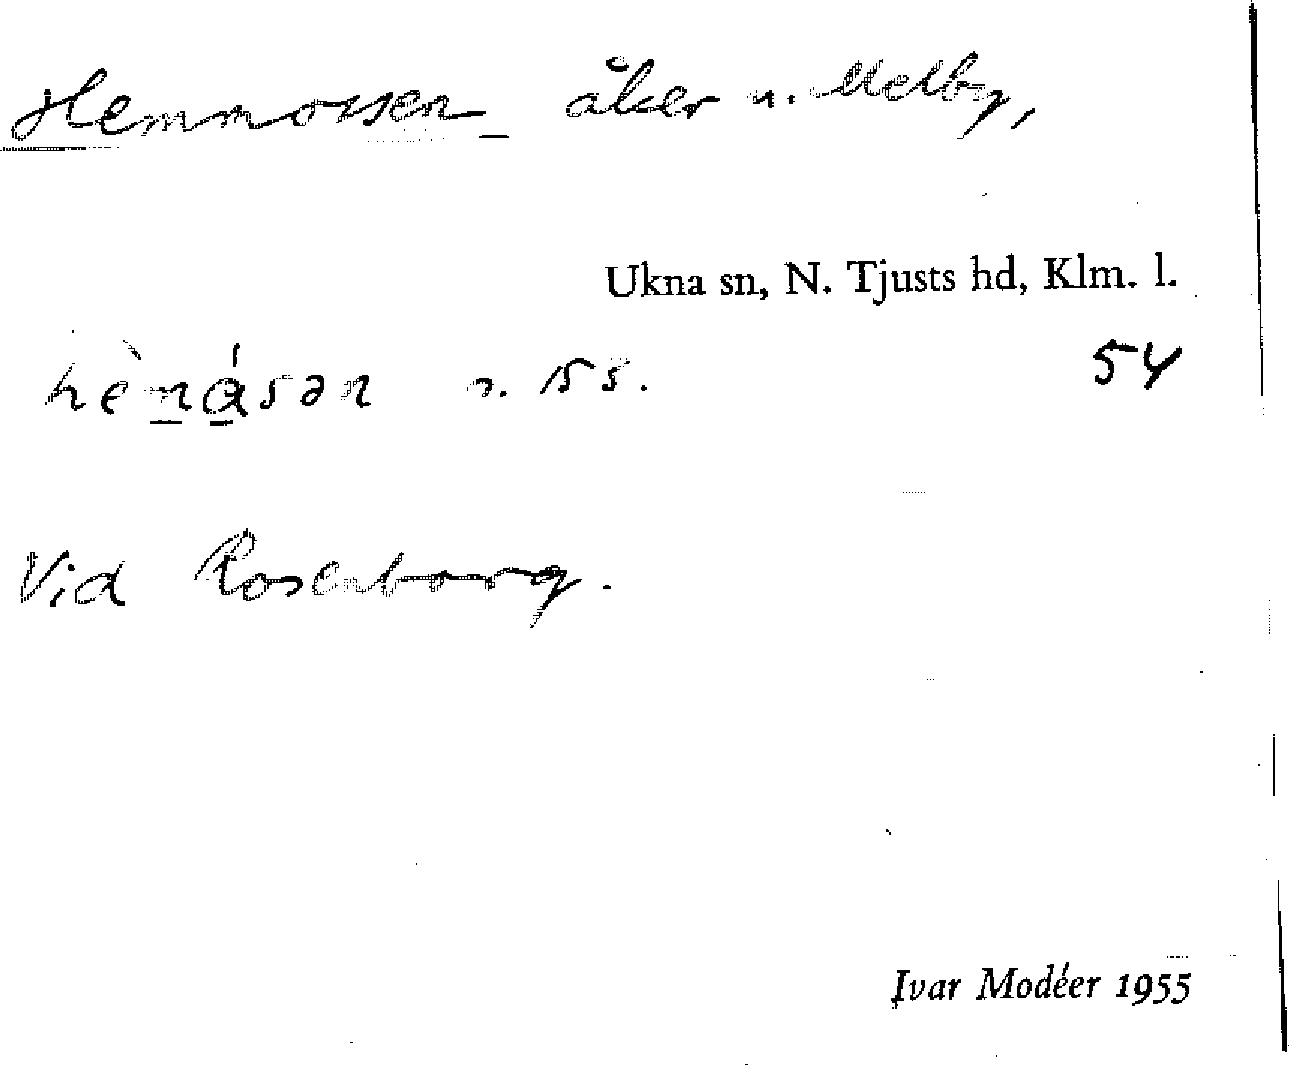 Hemmossen åker u. Melby,
Ukna sn, N. Tjusts hd, Klm. l.
54
Vid Rosenborg.
Ivar Modéer 1955